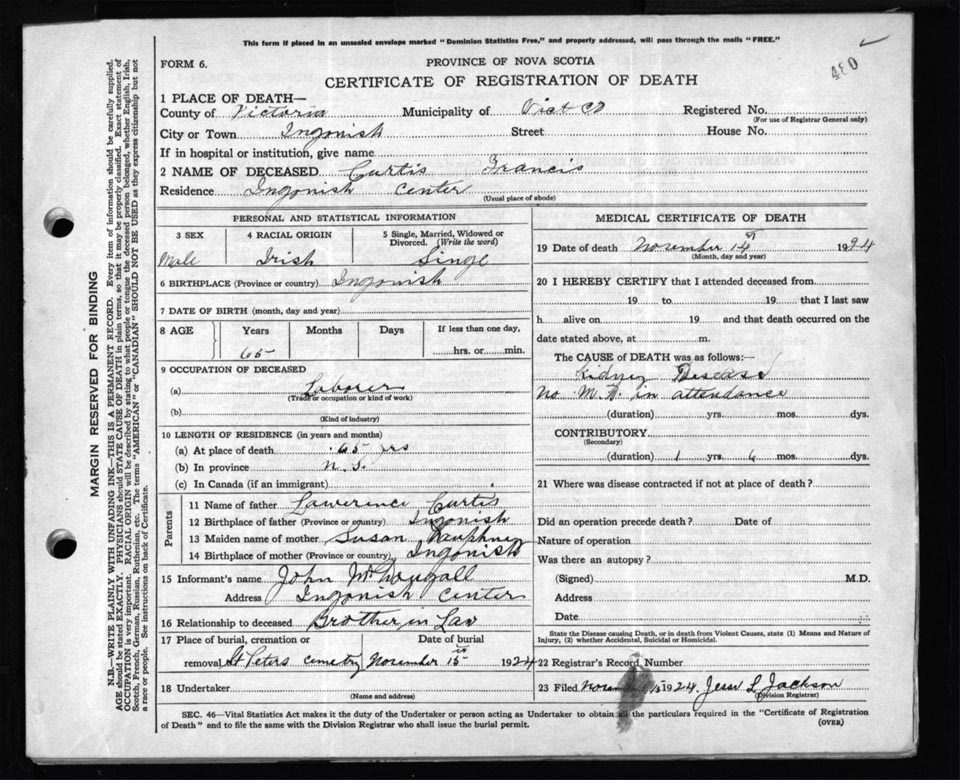 This form if placed in an unsealed envelope marked "Dominion Statistics Free," and properly addressed, will pass through the mails "FREE."
FORM 6.
PROVINCE OF NOVA SCOTIA
CERTIFICATE OF REGISTRATION OF DEATH
1 PLACE OF DEATH—
County of Victoria Municipality of Vict Co Registered No.
(For use of Registrar General only)
City or Town Ingonish Street House No.
If in hospital or institution, give name
2 NAME OF DECEASED Curtis Francis
Residence Ingonish Center
(Usual place of abode)
PERSONAL AND STATISTICAL INFORMATION
3 SEX 4 RACIAL ORIGIN 5 Single, Married, Widowed or Divorced. (Write the word)
Male Irish Singl
6 BIRTHPLACE (Province or country) Ingonish
7 DATE OF BIRTH (month, day and year)
8 AGE Years Months Days If less than one day,
65 hrs. or min.
9 OCCUPATION OF DECEASED
(a) Laborer
(Trade or occupation or kind of work)
(b)
(Kind of industry)
10 LENGTH OF RESIDENCE (in years and months)
(a) At place of death 65 yrs
(b) In province N.S.
(c) In Canada (if an immigrant)
Parents
11 Name of father Lawerence Curtis
12 Birthplace of father (Province or country) Ingonish
13 Maiden name of mother Susan
14 Birthplace of mother (Province or country) Ingonish
15 Informant's name John McDougall
Address Ingonish Center
16 Relationship to deceased Brother in Law
17 Place of burial, cremation or Date of burial
removal St Peters cemetry November 15th 1924
18 Undertaker
(Name and address)
MEDICAL CERTIFICATE OF DEATH
19 Date of death November 14th 1924
(Month, day and year)
20 I HEREBY CERTIFY that I attended deceased from
19 to 19 that I last saw
h alive on 19 and that death occurred on the
date stated above, at m.
The CAUSE OF DEATH was as follows:—
Kidney Disease
No M.D. in attendance
(duration) yrs. mos. dys.
CONTRIBUTORY
(Secondary)
(duration) 1 yrs. 6 mos. dys.
21 Where was disease contracted if not at place of death?
Did an operation precede death? Date of
Nature of operation
Was there an autopsy?
(Signed) M.D.
Address
Date
State the Disease causing Death, or in death from Violent Causes, state (1) Means and Nature of
Injury, (2) whether Accidental, Suicidal or Homicidal.
22 Registrar's Record Number
23 Filed November 15 1924. Jessr L. Jackson
(Division Registrar)
SEC. 46—Vital Statistics Act makes it the duty of the Undertaker or person acting as Undertaker to obtain all the particulars required in the "Certificate of Registration
of Death" and to file the same with the Division Registrar who shall issue the burial permit. (OVER)
MARGIN RESERVED FOR BINDING
N.B.—WRITE PLAINLY WITH UNFADING INK—THIS IS A PERMANENT RECORD. Every item of information should be carefully supplied.
AGE should be stated EXACTLY. PHYSICIANS should STATE CAUSE OF DEATH in plain terms, so that it may be properly classified. Exact statement of
OCCUPATION is very important. RACIAL ORIGIN will be described by stating to what people or tongue the deceased person belonged, whether English, Irish,
Scotch, French, German, Russian, Ruthenian, etc. The terms "AMERICAN" or "CANADIAN" SHOULD NOT BE USED as they express citizenship but not
a race or people. See instructions on back of Certificate.